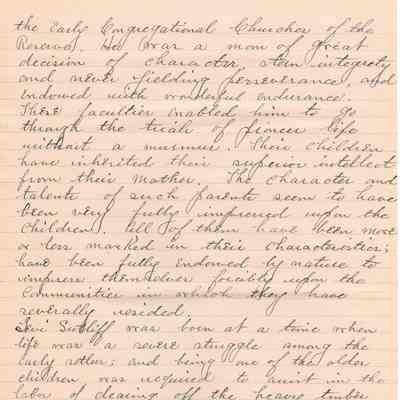 the Early Congregational Churches of the
Reserve. He was a man of great
decision of character, stern integrety
and never yielding perseverance, and
endowed with wonderful endurance.
These faculties enabled him to go
through the trials of pioneer life
without a murmur. Their children
have inherited their superior intellect
from their Mother. The character and
talents of such parents seem to have
been very fully impressed upon the
Children. All of them have been more
or less marked in their characteristics;
have been fully endowed by nature to
impress themselves forcibly upon the
Communities in which they have
severally resided.
Levi Sutliff was born at a time when
life was a severe struggle among the
early settlers; and being one of the older
children was required to assist in the
labor of clearing off the heavy timber